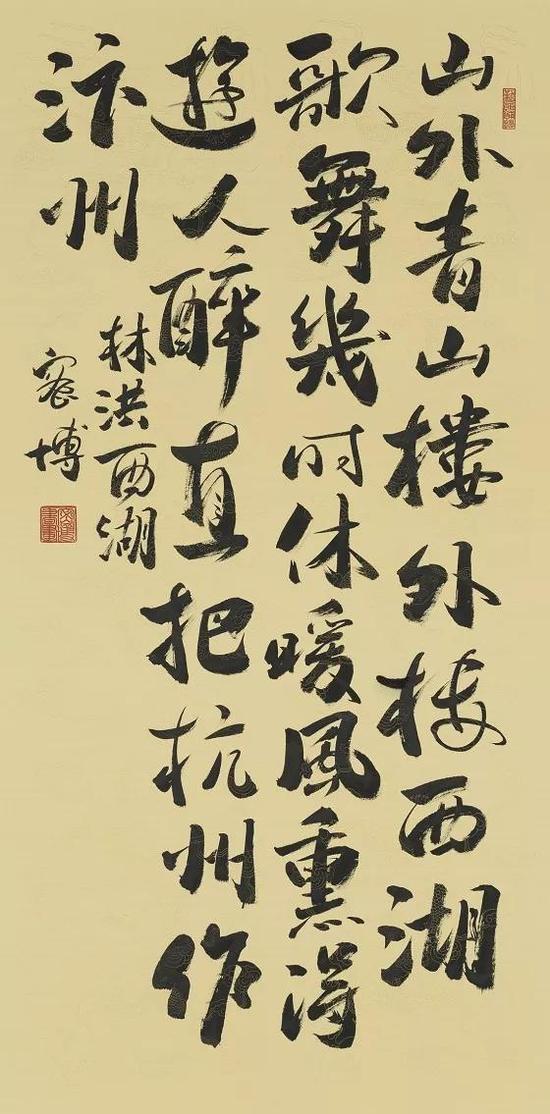 山外青山樓外楼西湖
歌舞幾时休暖風熏得
遊人醉直把杭州作
汴州
林洪西湖
寒博